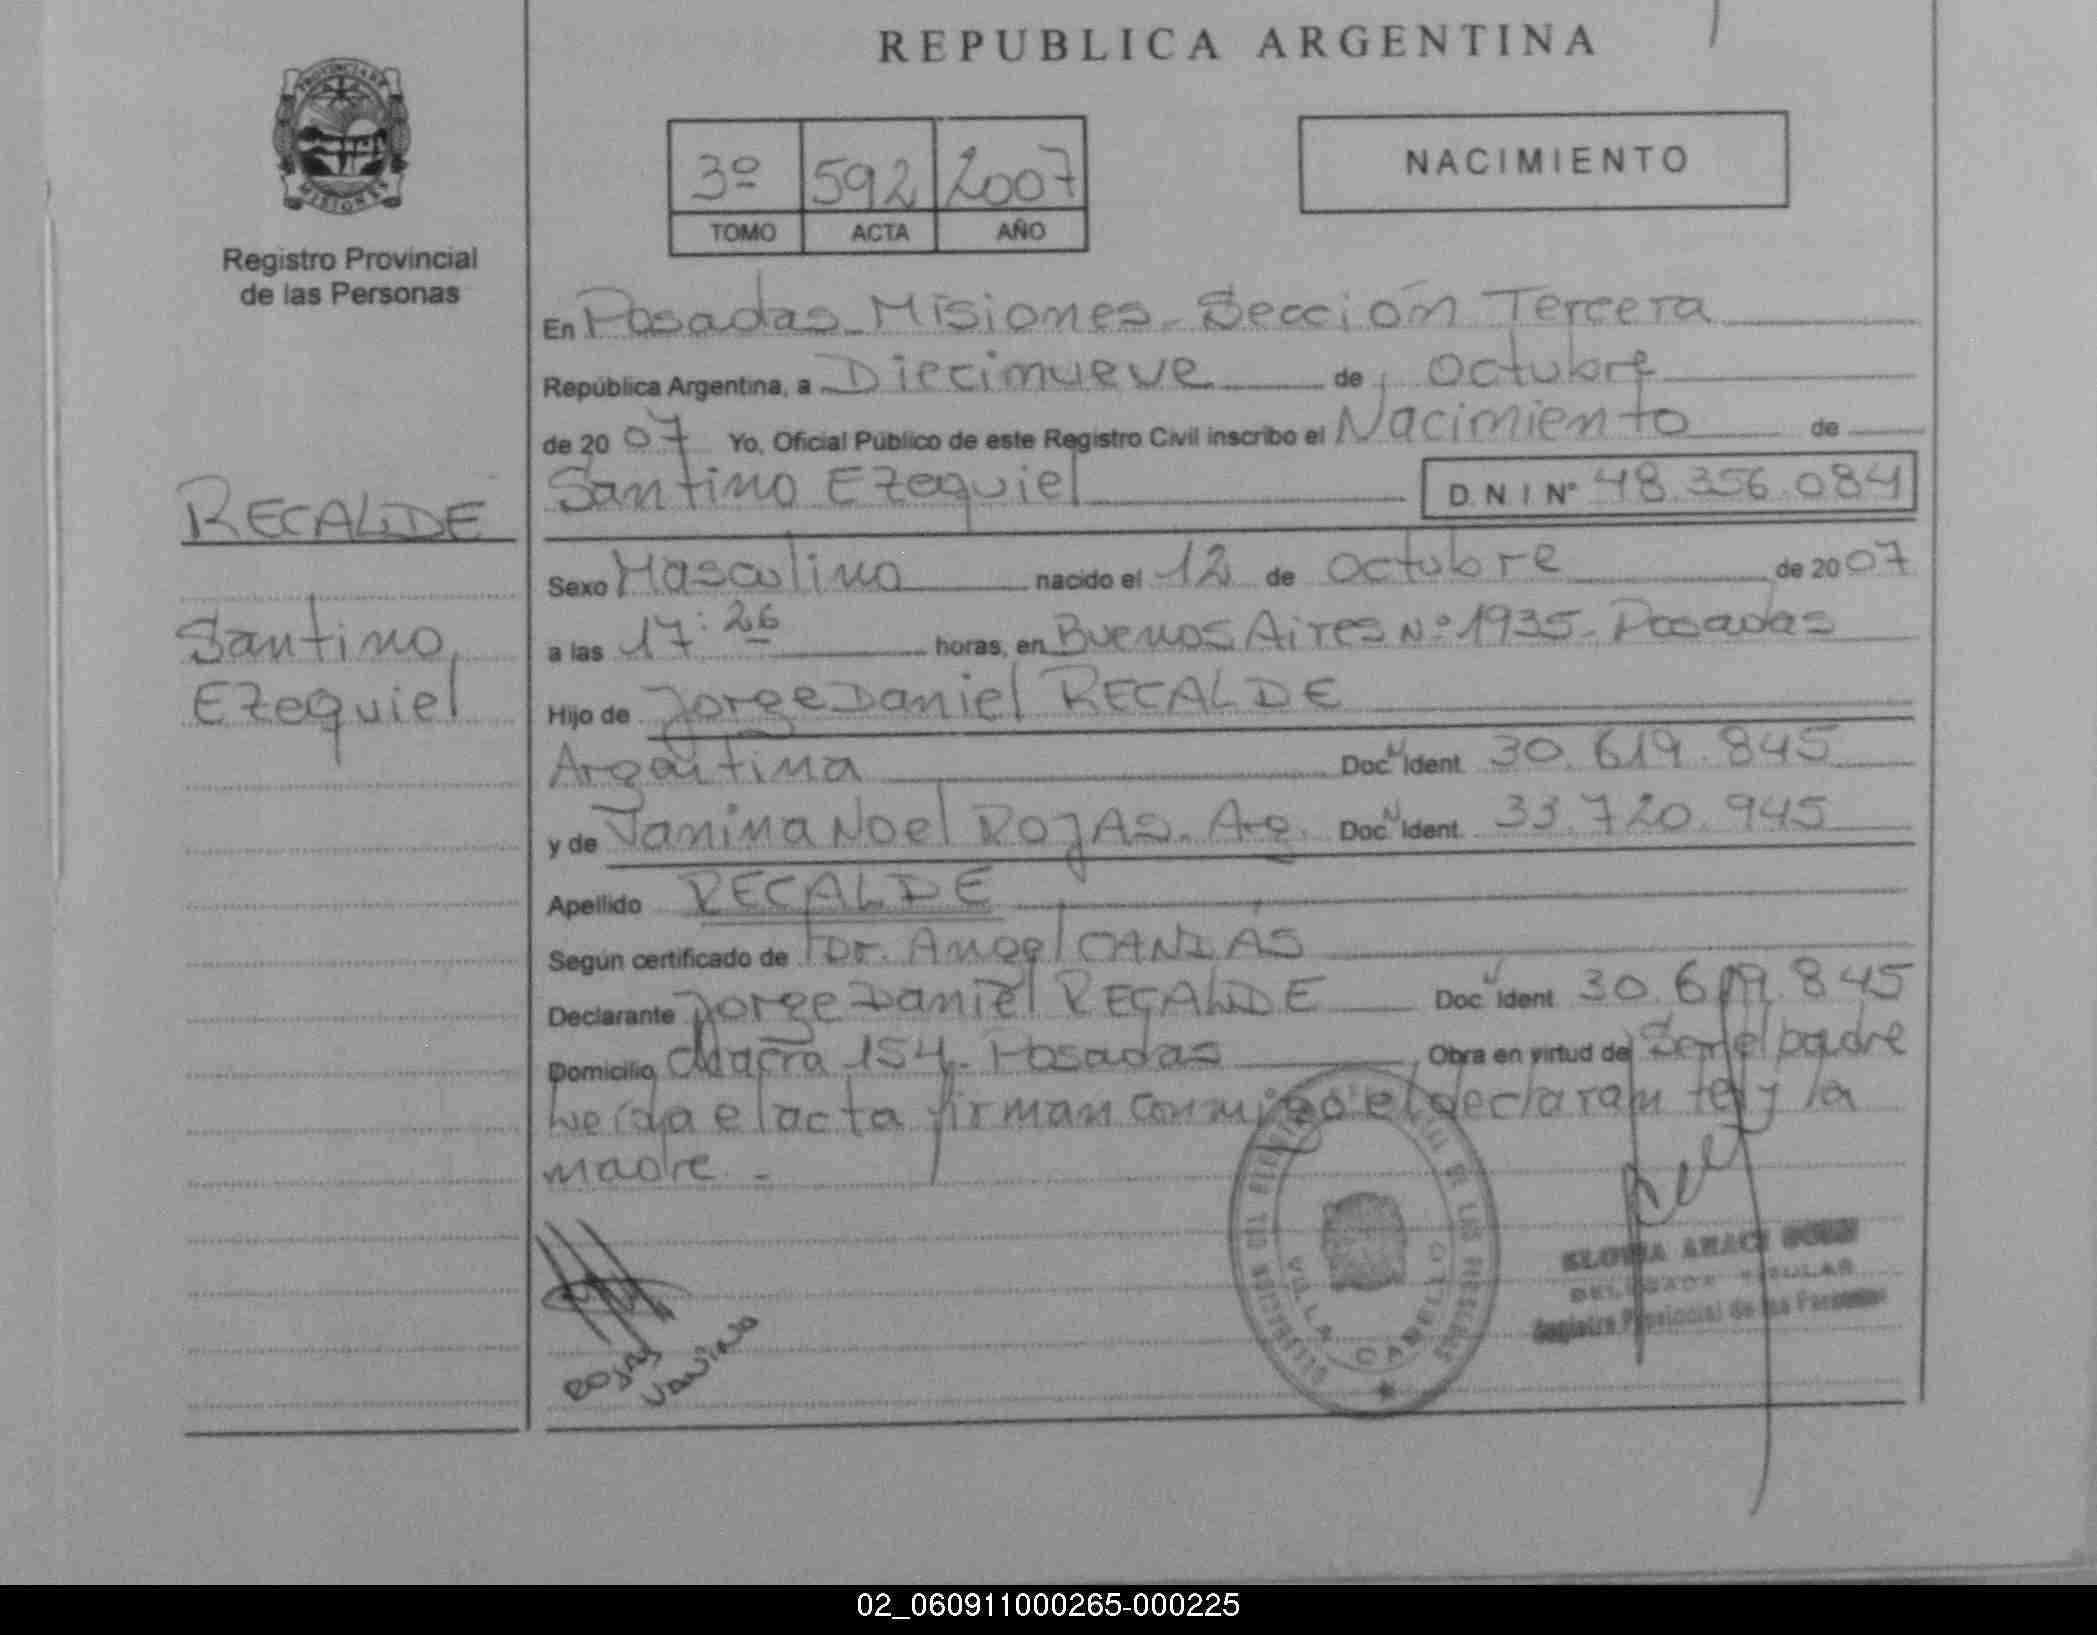 REPUBLICA ARGENTINA
PROVINCIA DE
MISIONES
Registro Provincial
de las Personas
3º 592 2007
TOMO ACTA AÑO
NACIMIENTO
En Posadas Misiones - Sección Tercera
República Argentina, a Diecinueve de Octubre
de 2007 Yo, Oficial Público de este Registro Civil inscribo el Nacimiento de
Santino Ezequiel D.N.I Nº 48.356.084
RECALDE
Santino
Ezequiel
Sexo Masculino nacido el 12 de Octubre de 2007
a las 17:26 horas, en Buenos Aires Nº 1935 - Posadas
Hijo de Jorge Daniel RECALDE
Argentina Doc. Ident. 30.619.845
y de Vanina Noel ROJAS. Arg. Doc. Ident. 33.720.945
Apellido RECALDE
Según certificado de Dr. Angel
Declarante Jorge Daniel RECALDE Doc. Ident. 30.619.845
Domicilio Chacra 154 - Posadas Obra en virtud de Ser el padre
Leída el acta firman conmigo el declarante y la
madre -
ROJAS
VANINA
VILLA CABELLO
DELEGADA TITULAR
Registro Provincial de las Personas
02_060911000265-000225